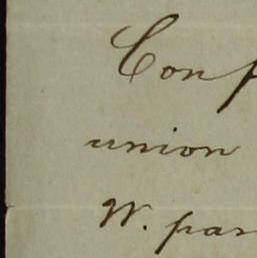 Conf
union
W. par